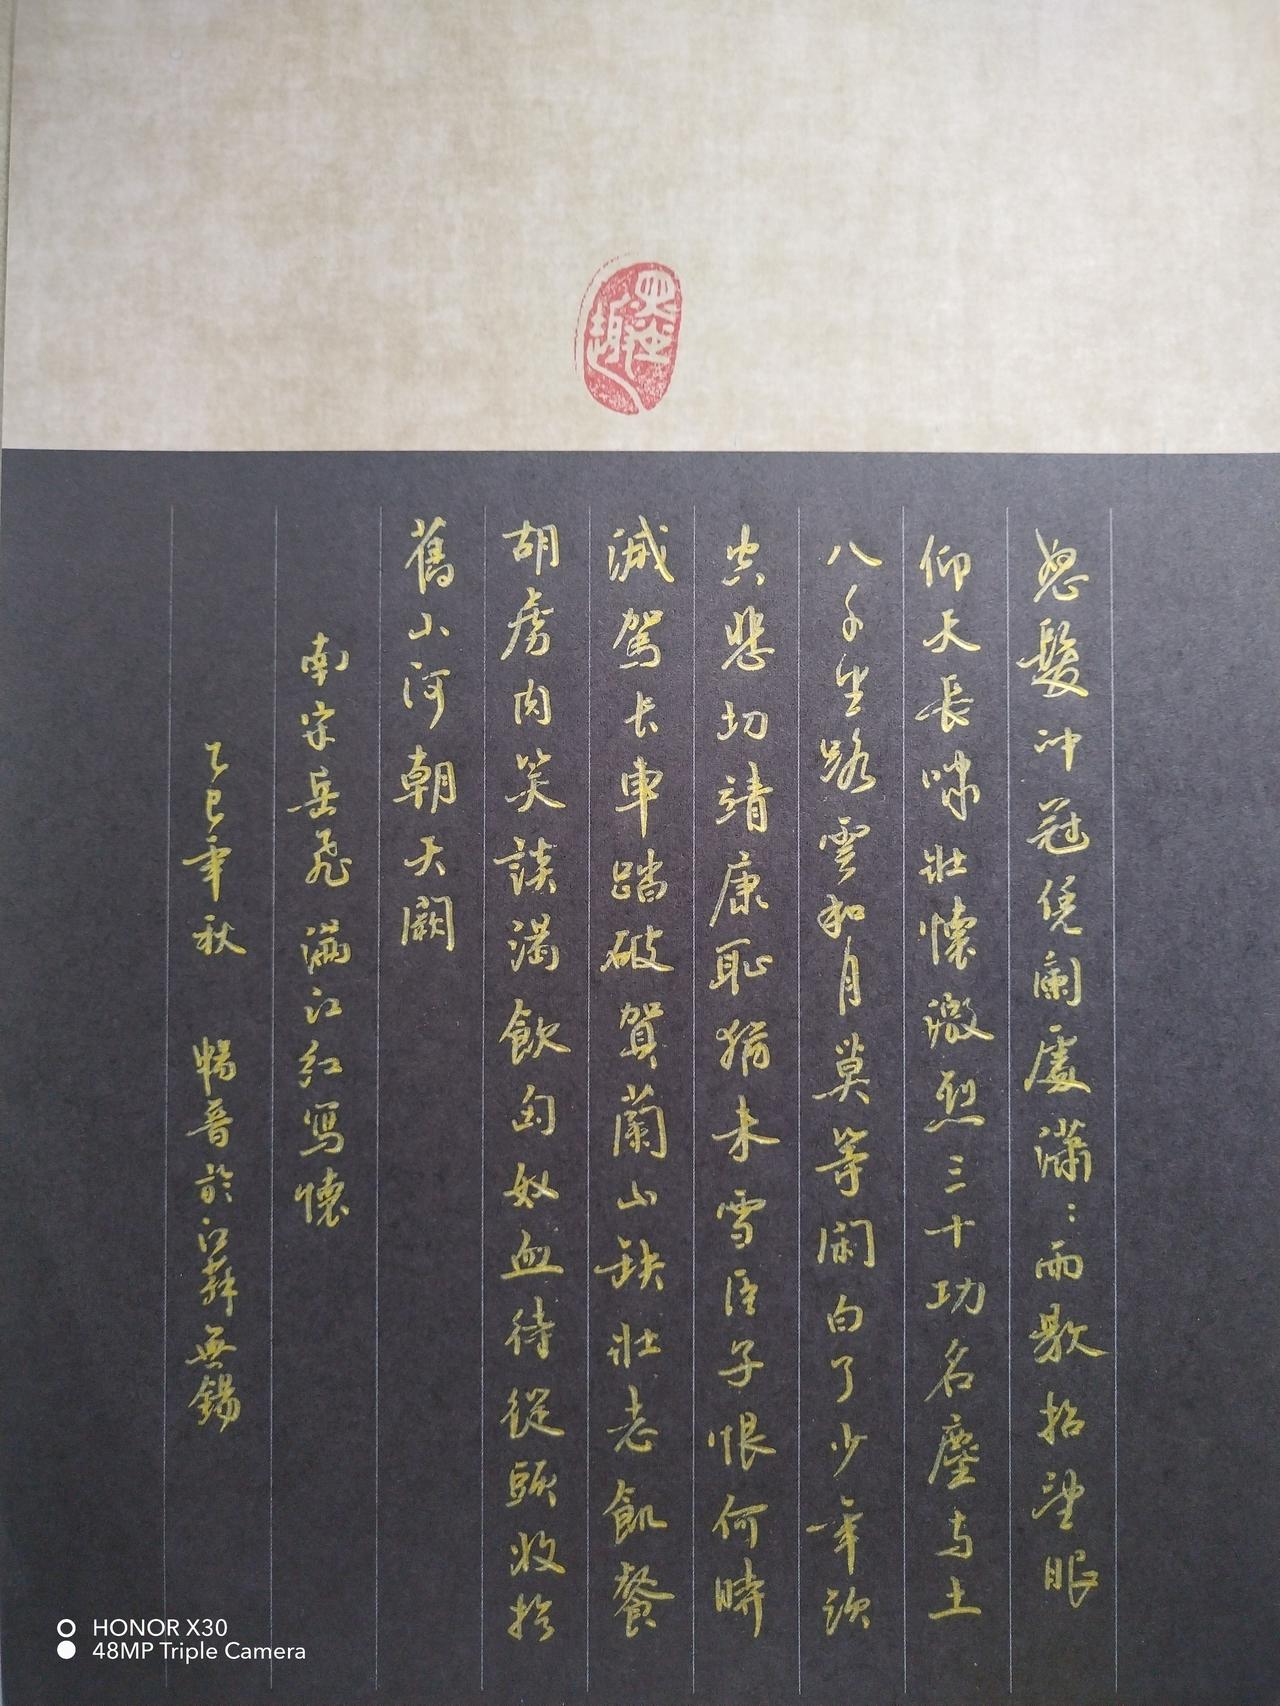 怒髮冲冠凭阑處瀟:雨歇抬望眼
仰天長嘯壯懷激烈三十功名塵与土
八千里路雲和月莫等閑白了少年頭
空悲切靖康恥猶未雪臣子恨何時
滅駕长車踏破賀蘭山缺壯志飢餐
胡虜肉笑談渴飲匈奴血待從頭收拾
舊山河朝天闕
南宋岳飛滿江红寫懷
乙巳年秋 暢晋於江蘇無錫
HONOR X30
48MP Triple Camera